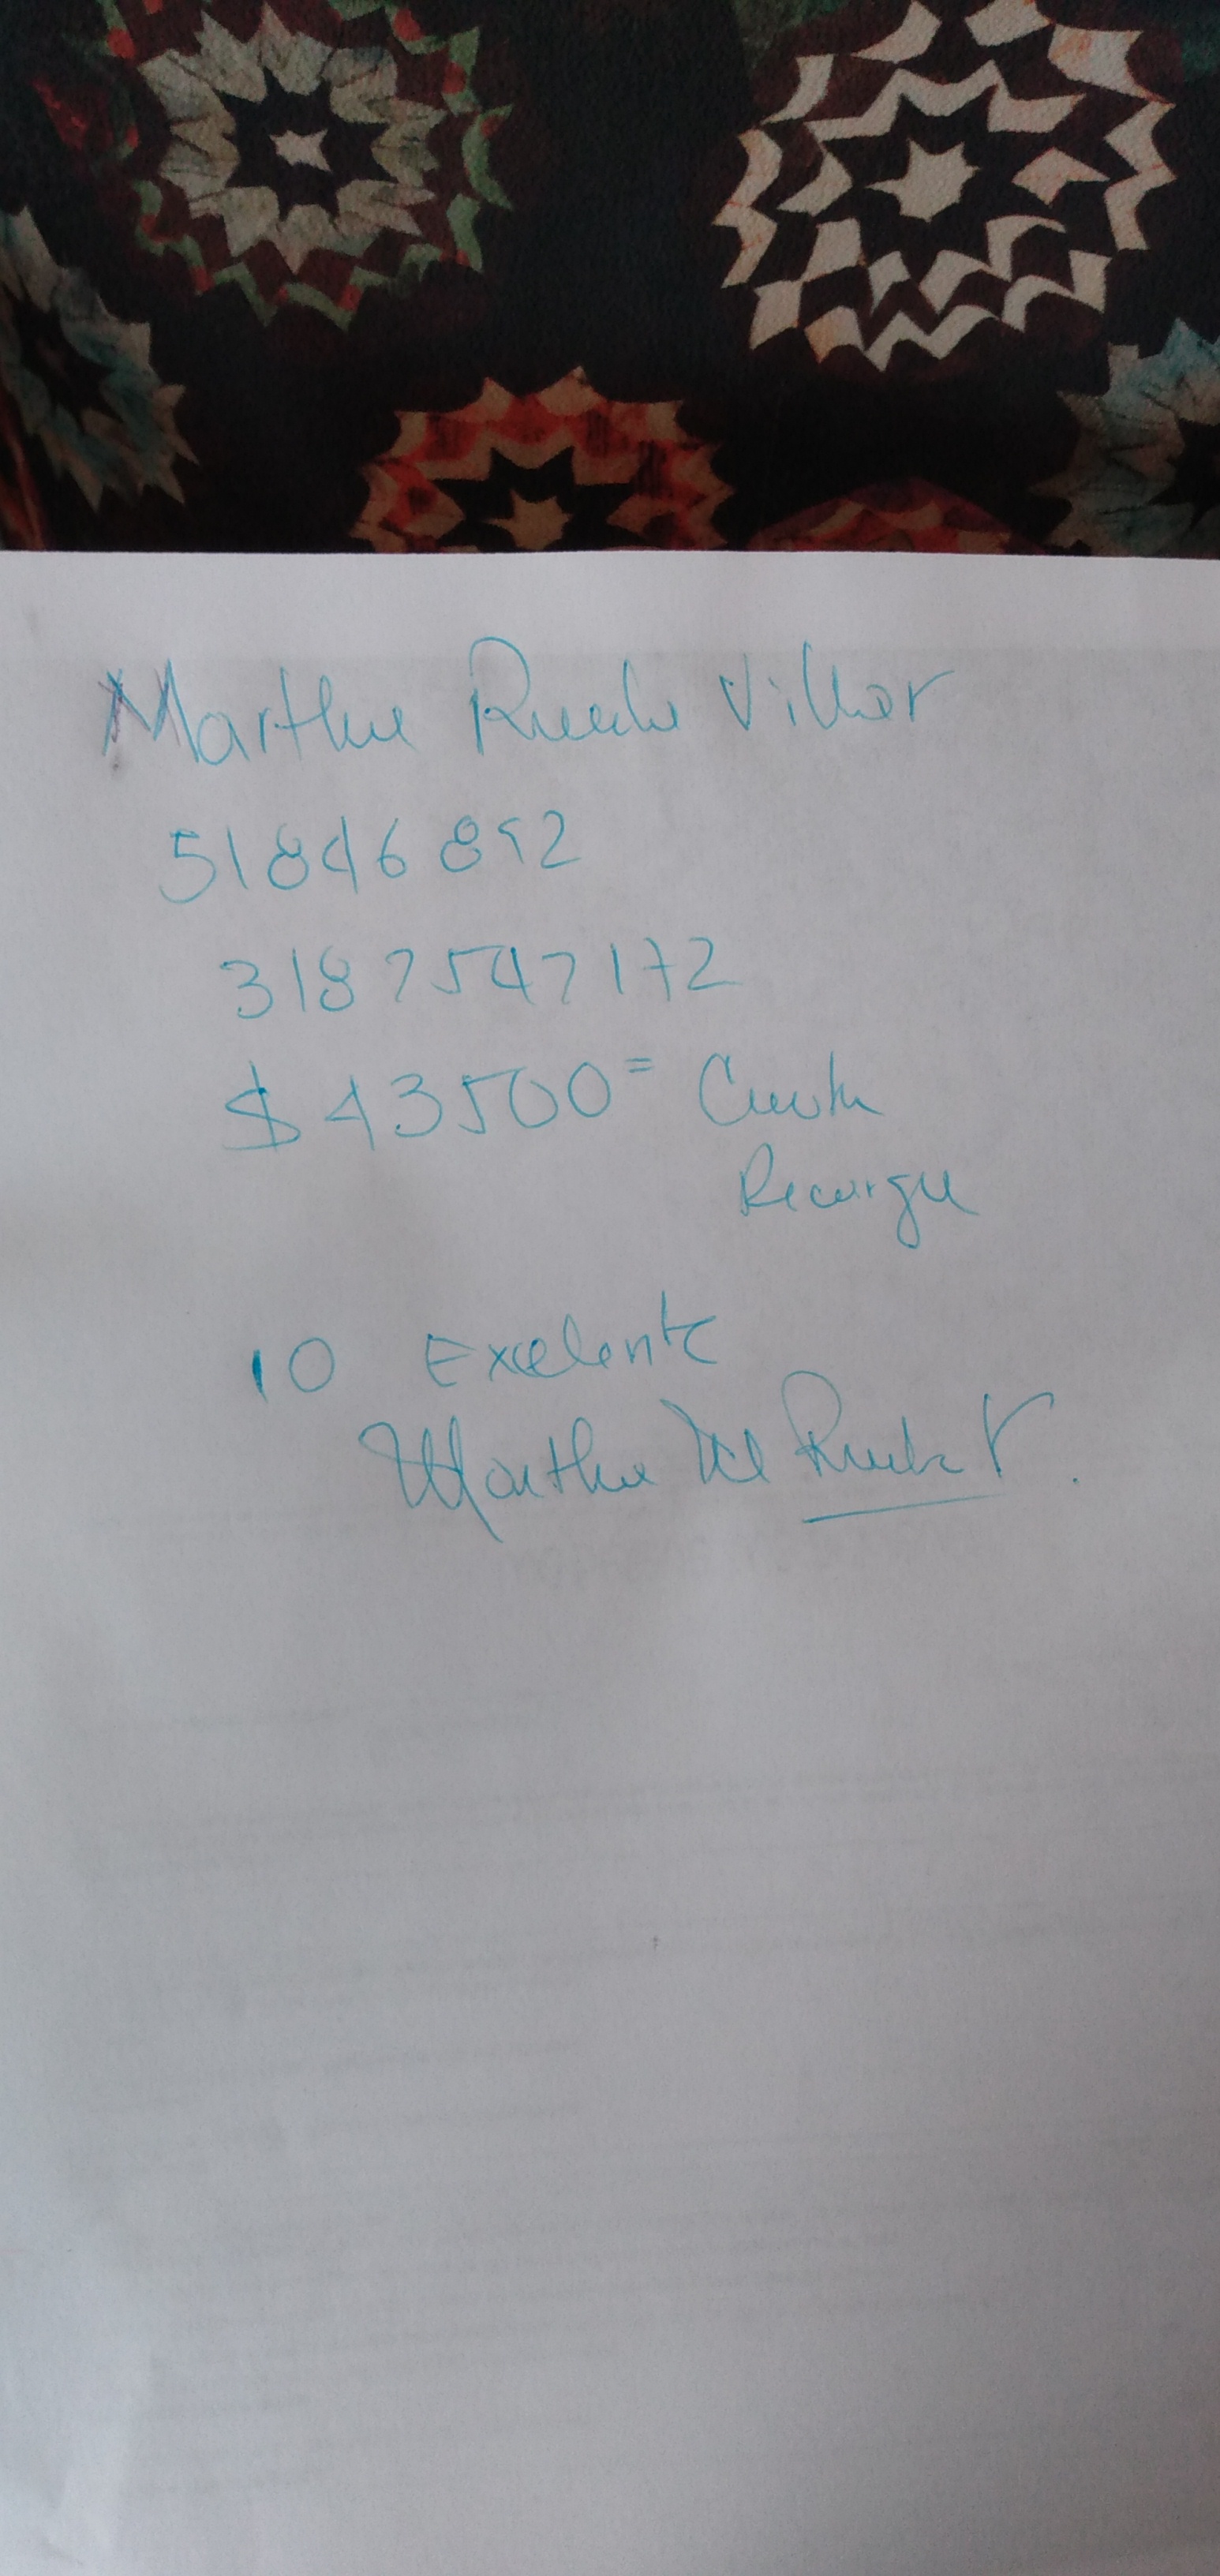 Martha Rueda Villar
51846852
3187547172
$ 43500= Cuenta
Recarga
10 Exelente
Martha Rueda V.